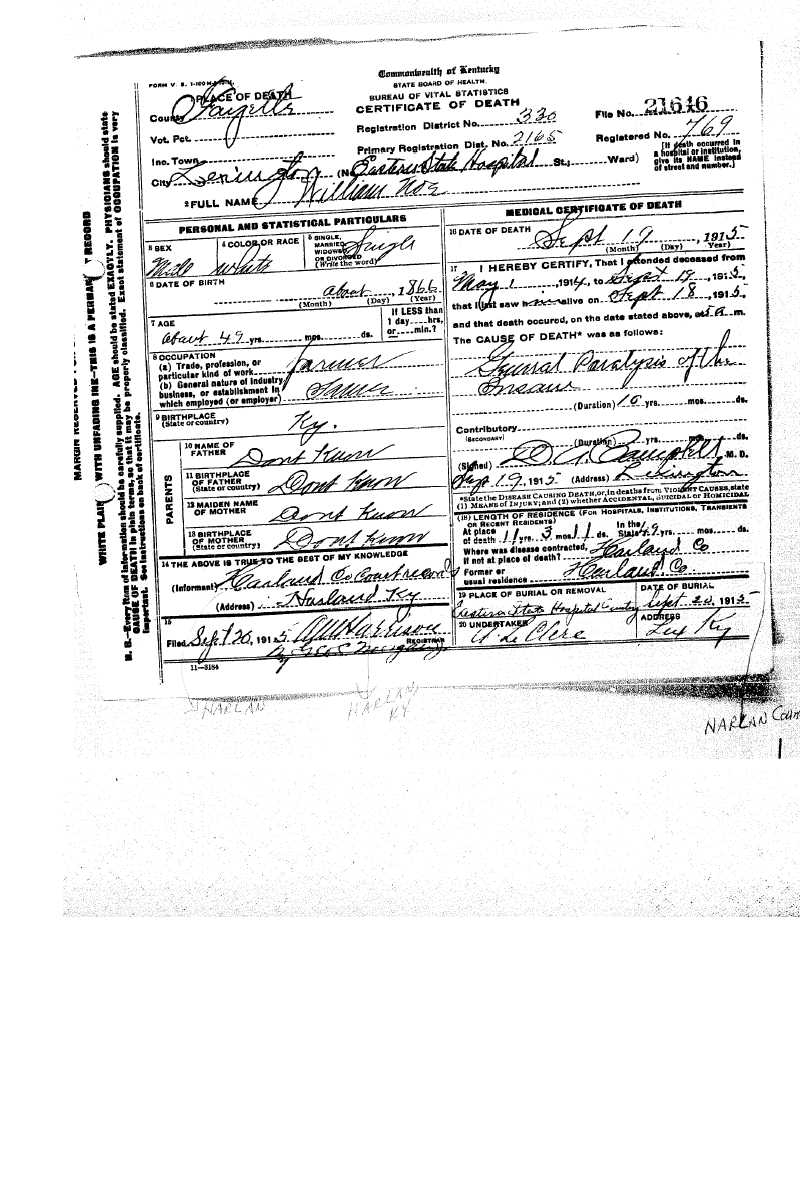 Commonwealth of Kentucky
STATE BOARD OF HEALTH.
BUREAU OF VITAL STATISTICS
CERTIFICATE OF DEATH
FORM V. S. 1-100M
PLACE OF DEATH
County Fayette
Vot. Pct.
Inc. Town
City Lexington (No. Eastern State Hospital St.; Ward)
Registration District No. 330
Primary Registration Dist. No. 2165
File No. 21646
Registered No. 769
[If death occurred in
a hospital or institution,
give its NAME instead
of street and number.]
2 FULL NAME William Noe
PERSONAL AND STATISTICAL PARTICULARS
3 SEX
Male
4 COLOR OR RACE
White
5 SINGLE,
MARRIED,
WIDOWED
OR DIVORCED
(Write the word)
Single
6 DATE OF BIRTH
about 1866
(Month) (Day) (Year)
7 AGE
about 49 yrs. mos. ds.
If LESS than
1 day hrs.
or min.?
8 OCCUPATION
(a) Trade, profession, or
particular kind of work farmer
(b) General nature of industry
business, or establishment in
which employed (or employer)
9 BIRTHPLACE
(State or country) Ky.
PARENTS
10 NAME OF
FATHER Dont Know
11 BIRTHPLACE
OF FATHER
(State or country) Dont Know
12 MAIDEN NAME
OF MOTHER Dont Know
13 BIRTHPLACE
OF MOTHER
(State or country) Dont Know
14 THE ABOVE IS TRUE TO THE BEST OF MY KNOWLEDGE
(Informant) Harland Co Court records
(Address) Harland Ky
15
Filed Sept 20, 1915 A W Harrison
REGISTRAR
By
11-3184
MEDICAL CERTIFICATE OF DEATH
16 DATE OF DEATH Sept 19, 1915
(Month) (Day) Year)
17 I HEREBY CERTIFY, That I attended deceased from
May 1, 1914, to Sept 19, 1915,
that I last saw him alive on Sept 18, 1915,
and that death occured, on the date stated above, at 5 A m.
The CAUSE OF DEATH* was as follows:
General Paralysis of the
Insane
(Duration) 10 yrs. mos. ds.
Contributory
(SECONDARY)
(Duration) yrs. mos. ds.
(Signed) Campbell M. D.
Sept 19, 1915 (Address) Lexington
*State the DISEASE CAUSING DEATH, or, in deaths from VIOLENT CAUSES, state
(1) MEANS OF INJURY; and (2) whether ACCIDENTAL, SUICIDAL or HOMICIDAL
(18) LENGTH OF RESIDENCE (FOR HOSPITALS, INSTITUTIONS, TRANSIENTS
OR RECENT RESIDENTS)
At place
of death 11 yrs. 3 mos. 11 ds.
In the
State 49 yrs. mos. ds.
Where was disease contracted,
if not at place of death? Harland Co
Former or
usual residence Harland. Co
19 PLACE OF BURIAL OR REMOVAL
Eastern State Hospital
DATE OF BURIAL
Sept. 20, 1915
20 UNDERTAKER
W. Le Clere
ADDRESS
Lex Ky
MARGIN RESERVED
WRITE PLAINLY WITH UNFADING INK—THIS IS A PERMANENT RECORD
N. B.—Every item of information should be carefully supplied. AGE should be stated EXACTLY. PHYSICIANS should state
CAUSE OF DEATH in plain terms, so that it may be properly classified. Exact statement of OCCUPATION is very
important. See instructions on back of certificate.
HARLAN
HARLAN,
KY
HARLAN Coun